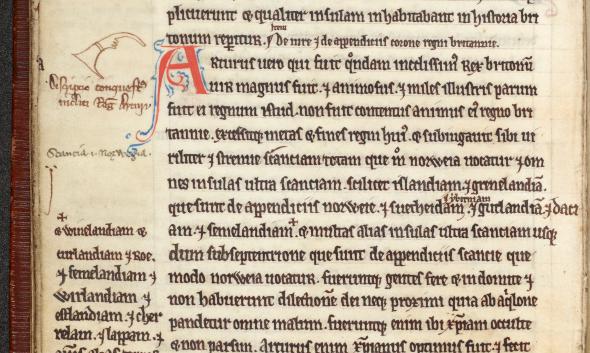 plicuerunt & qualiter insulam inhabitabant in historia bri
tonum repitur. Item De iure & de appendiciis corone regni britannie.
Arturus uero qui fuit qndam inclissim' Rex britonũ
uir magnus fuit & animosus & miles illustris parum
fuit ei regnum istud. non fuit contentus animus ei' regno bri
tannie. excessitq; metas & fines regni hui'. & subiugauit sibi ui
riliter & strenue scanciam totam que m̊ norweia uocatur & om
nes insulas ultra scanciam. scilicet islandiam & grenelandiã.
que sunt de appendiciis norweie. & suecheidam hyberniam & gutlandiã & daci
am. & semelandiam + & multas alias insulas ultra scanciam usq;
dum sub septentrione que sunt de appendiciis scancie que
modo norweia uocatur. fueruntq; gentes fere & indomite &
non habuerunt dilectionẽ dei neq; proximi quia ab aq̃lone
pandetur omne malum. fueruntq; enim ibi xp̃iani occulte
& non parum. Arturus enim xp̃ianus optimus fuit. & fecit
discripcio conquest'
incliti Reg' Arturi
Scancia .i. Norwegia.
+
& winelandiam &
curlandiam & Roe.
& femelandiam &
wirlandiam &
estlandiam & cher
relam. & lappam. &